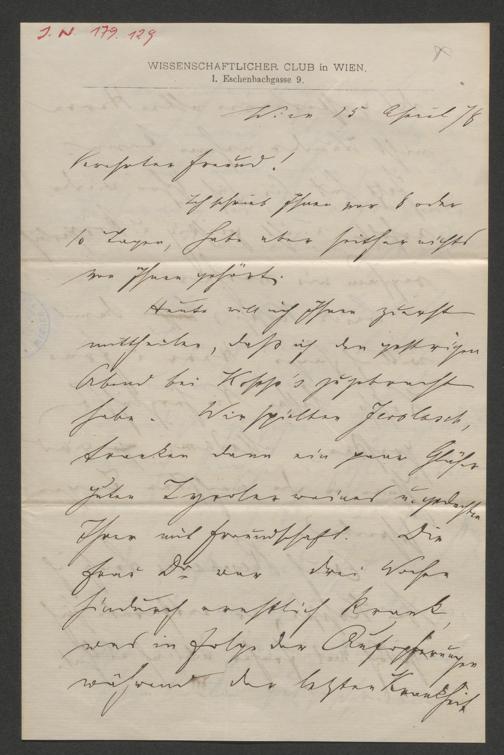 J. N. 179.129
WISSENSCHAFTLICHER CLUB in WIEN,
I. Eschenbachgasse 9.
Wien 15 April /78
Verehrter Freund!
Ich schrieb Ihnen vor 8 oder
10 Tagen, habe aber seither nichts
von Ihnen gehört.
Heute will ich Ihnen zuerst
mittheilen, daß ich den gestrigen
Abend bei zugebracht
habe. Wir spielten
tranken dann ein paar Gläser
guten Tyroler weines u. gedachten
Ihrer mit Freundschaft. Die
Frau Dr war drei Wochen
hindurch ernstlich krank,
was in Folge der Aufopferungen
während der letzten Krankheit